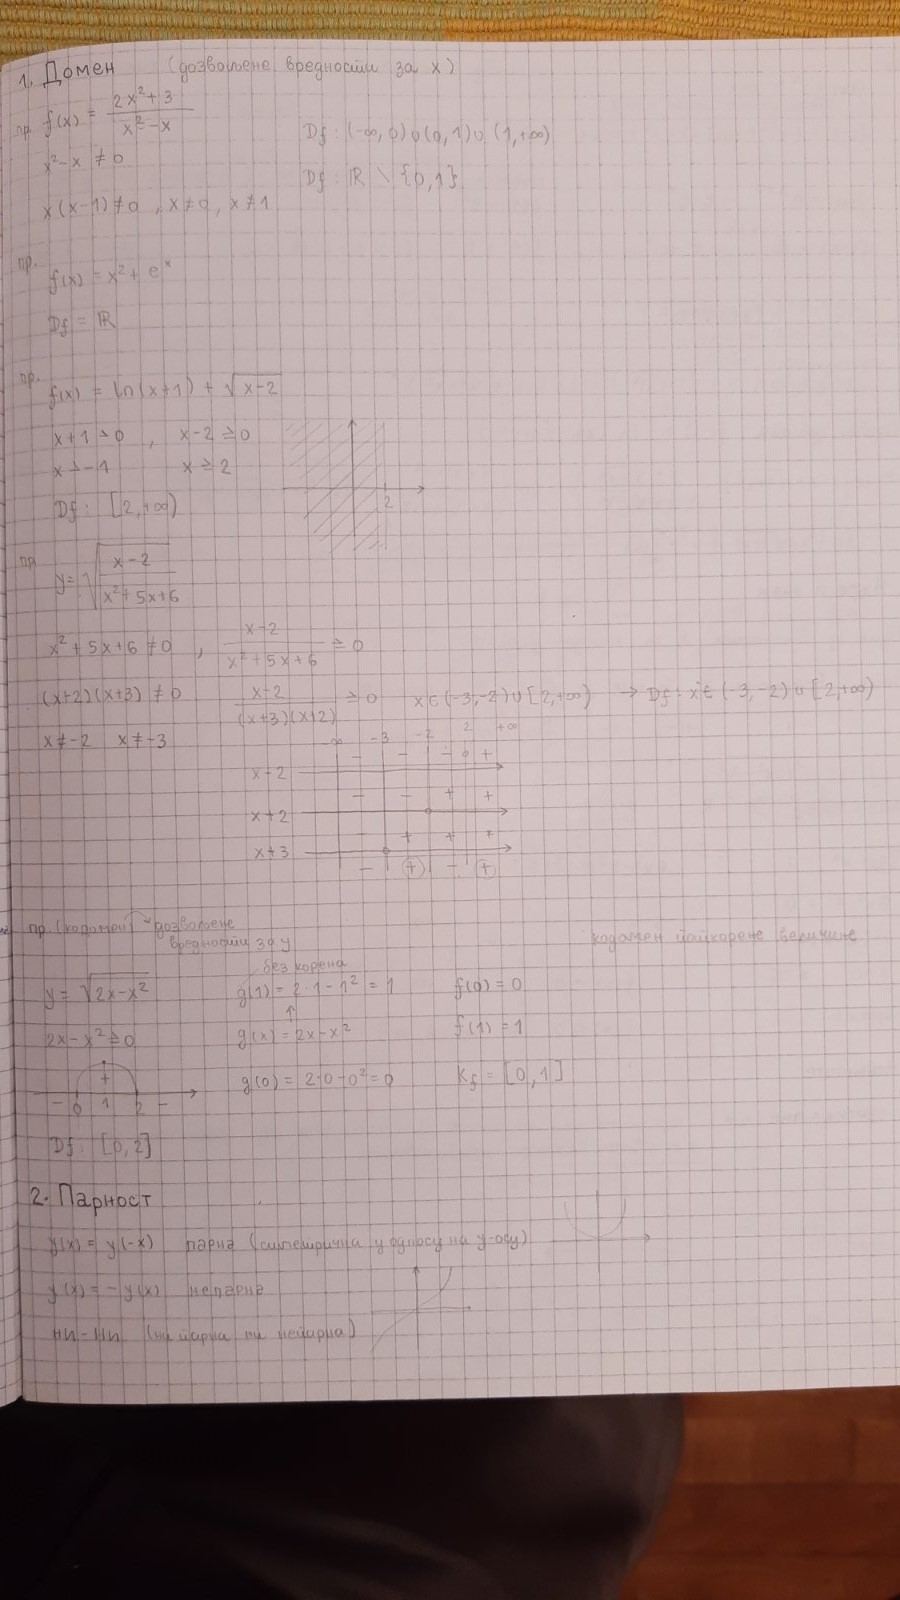 1. Домен (дозвољене вредности за x)
пр. f(x) = (2x²+3)/(x²-x)
Df: (-∞, 0) ∪ (0, 1) ∪ (1, +∞)
x²-x ≠ 0
Df: ℝ \ {0,1}
x(x-1) ≠ 0, x ≠ 0, x ≠ 1
пр.
f(x) = x² + eˣ
Df = ℝ
пр.
f(x) = ln(x+1) + √(x-2)
x+1 > 0 , x-2 ≥ 0
x > -1 x ≥ 2
2
Df: [2, +∞)
пр
y = √((x-2)/(x²+5x+6))
x²+5x+6 ≠ 0 , (x-2)/(x²+5x+6) ≥ 0
(x+2)(x+3) ≠ 0 (x-2)/((x+3)(x+2)) ≥ 0 x ∈ (-3,-2) ∪ [2,+∞) → Df: x ∈ (-3,-2) ∪ [2,+∞)
x ≠ -2 x ≠ -3
∞ -3 -2 2 +∞
x-2 - - - 0 +
x+2 - - + +
x+3 + + +
- (+) - (+)
пр. (кодомен) → дозвољене
вредности за y
без корена
y = √(2x-x²) g(1) = 2·1-1² = 1 f(0) = 0
↑
2x-x² ≥ 0 g(x) = 2x-x² f(1) = 1
+
g(0) = 2·0-0² = 0 Kf = [0,1]
- 0 1 2 -
Df: [0,2]
2. Парност
y(x) = y(-x) парна (симетрична у односу на y-осу)
y(x) = -y(x) непарна
ни-ни (ни парна ни непарна)